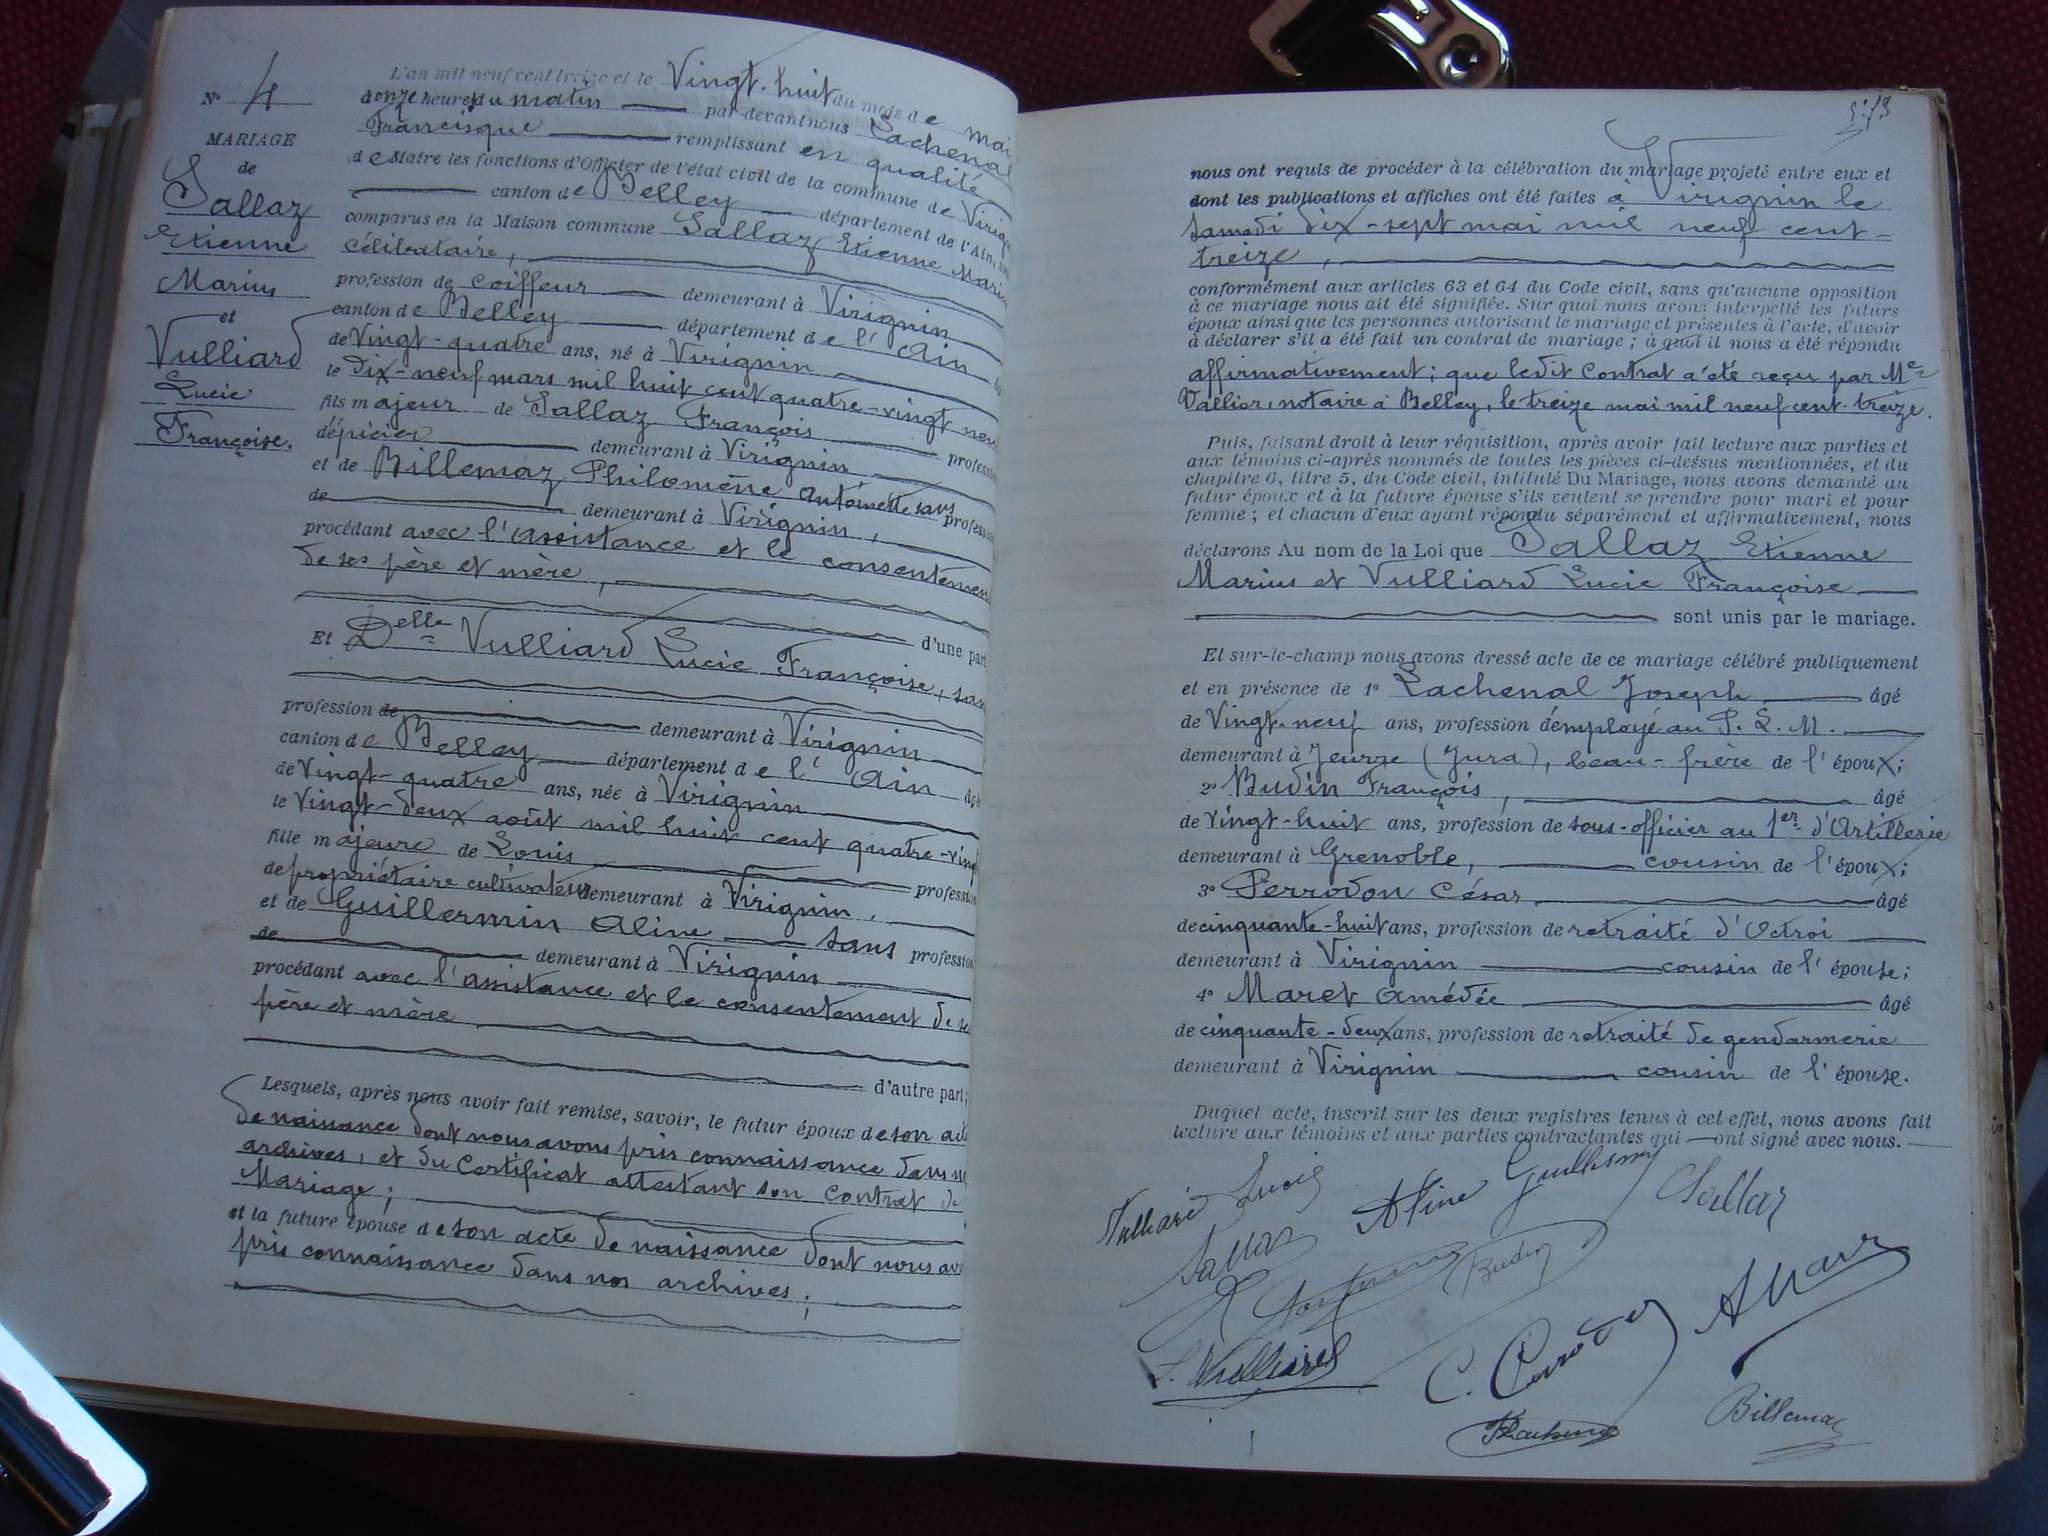 N° 4
MARIAGE
de
Sallaz
Etienne
Marius
et
Vulliard
Lucie
Françoise.
L'an mil neuf cent treize et le Vingt-huit du mois de mai
onze heures du matin par-devant nous Lachenal
Francisque remplissant en qualité
de Maire les fonctions d'Officier de l'état civil de la commune de
canton de Belley département de l'Ain,
comparus en la Maison commune Sallaz Etienne Marius
célibataire,
profession de coiffeur demeurant à Virignin
canton de Belley département de l'Ain
de Vingt-quatre ans, né à Virignin
le Dix-neuf mars mil huit cent quatre-vingt neuf
fils majeur de Sallaz François
d'épicier demeurant à Virignin profession
et de Billemaz Philomène Antoinette sans
de demeurant à Virignin, profession
procédant avec l'assistance et le consentement
de ses père et mère,
d'une part
Et Delle Vulliard Lucie Françoise, sans
profession de demeurant à Virignin
canton de Belley département de l'Ain
de Vingt-quatre ans, née à Virignin
le Vingt-deux août mil huit cent quatre-vingt
fille majeure de Louis profession
de propriétaire cultivateur demeurant à Virignin,
et de Guillermin Aline sans profession
de demeurant à Virignin
procédant avec l'assistance et le consentement de
père et mère
d'autre part;
Lesquels, après nous avoir fait remise, savoir, le futur époux de son
de naissance dont nous avons pris connaissance dans
archives, et du Certificat attestant son Contrat de
Mariage;
et la future épouse de son acte de naissance dont nous
pris connaissance dans nos archives;
nous ont requis de procéder à la célébration du mariage projeté entre eux et
dont les publications et affiches ont été faites à Virignin le
samedi dix-sept mai mil neuf cent-
treize,
conformément aux articles 63 et 64 du Code civil, sans qu'aucune opposition
à ce mariage nous ait été signifiée. Sur quoi nous avons interpellé les futurs
époux ainsi que les personnes autorisant le mariage et présentes à l'acte, d'avoir
à déclarer s'il a été fait un contrat de mariage; à quoi il nous a été répondu
affirmativement; que ledit Contrat a été reçu par Me
Vallier, notaire à Belley, le treize mai mil neuf cent treize.
Puis, faisant droit à leur réquisition, après avoir fait lecture aux parties et
aux témoins ci-après nommés de toutes les pièces ci-dessus mentionnées, et du
chapitre 6, titre 5, du Code civil, intitulé Du Mariage, nous avons demandé au
futur époux et à la future épouse s'ils veulent se prendre pour mari et pour
femme; et chacun d'eux ayant répondu séparément et affirmativement, nous
déclarons Au nom de la Loi que Sallaz Etienne
Marius et Vulliard Lucie Françoise
sont unis par le mariage.
Et sur-le-champ nous avons dressé acte de ce mariage célébré publiquement
et en présence de 1° Lachenal Joseph âgé
de Vingt-neuf ans, profession d'employé au P. L. M.
demeurant à Jeurre (Jura), beau-frère de l'époux;
2° Budin François, âgé
de vingt-huit ans, profession de sous-officier au 1er d'Artillerie
demeurant à Grenoble, cousin de l'époux;
3° Perrodon César, âgé
de cinquante-huit ans, profession de retraité d'Octroi
demeurant à Virignin cousin de l'épouse;
4° Maret Amédée âgé
de cinquante-deux ans, profession de retraité de gendarmerie
demeurant à Virignin cousin de l'épouse.
Duquel acte, inscrit sur les deux registres tenus à cet effet, nous avons fait
lecture aux témoins et aux parties contractantes qui ont signé avec nous.
Vulliard Lucie
Aline Guillermin
Sallaz
Sallaz
Budin
L. Vulliard
Billemaz